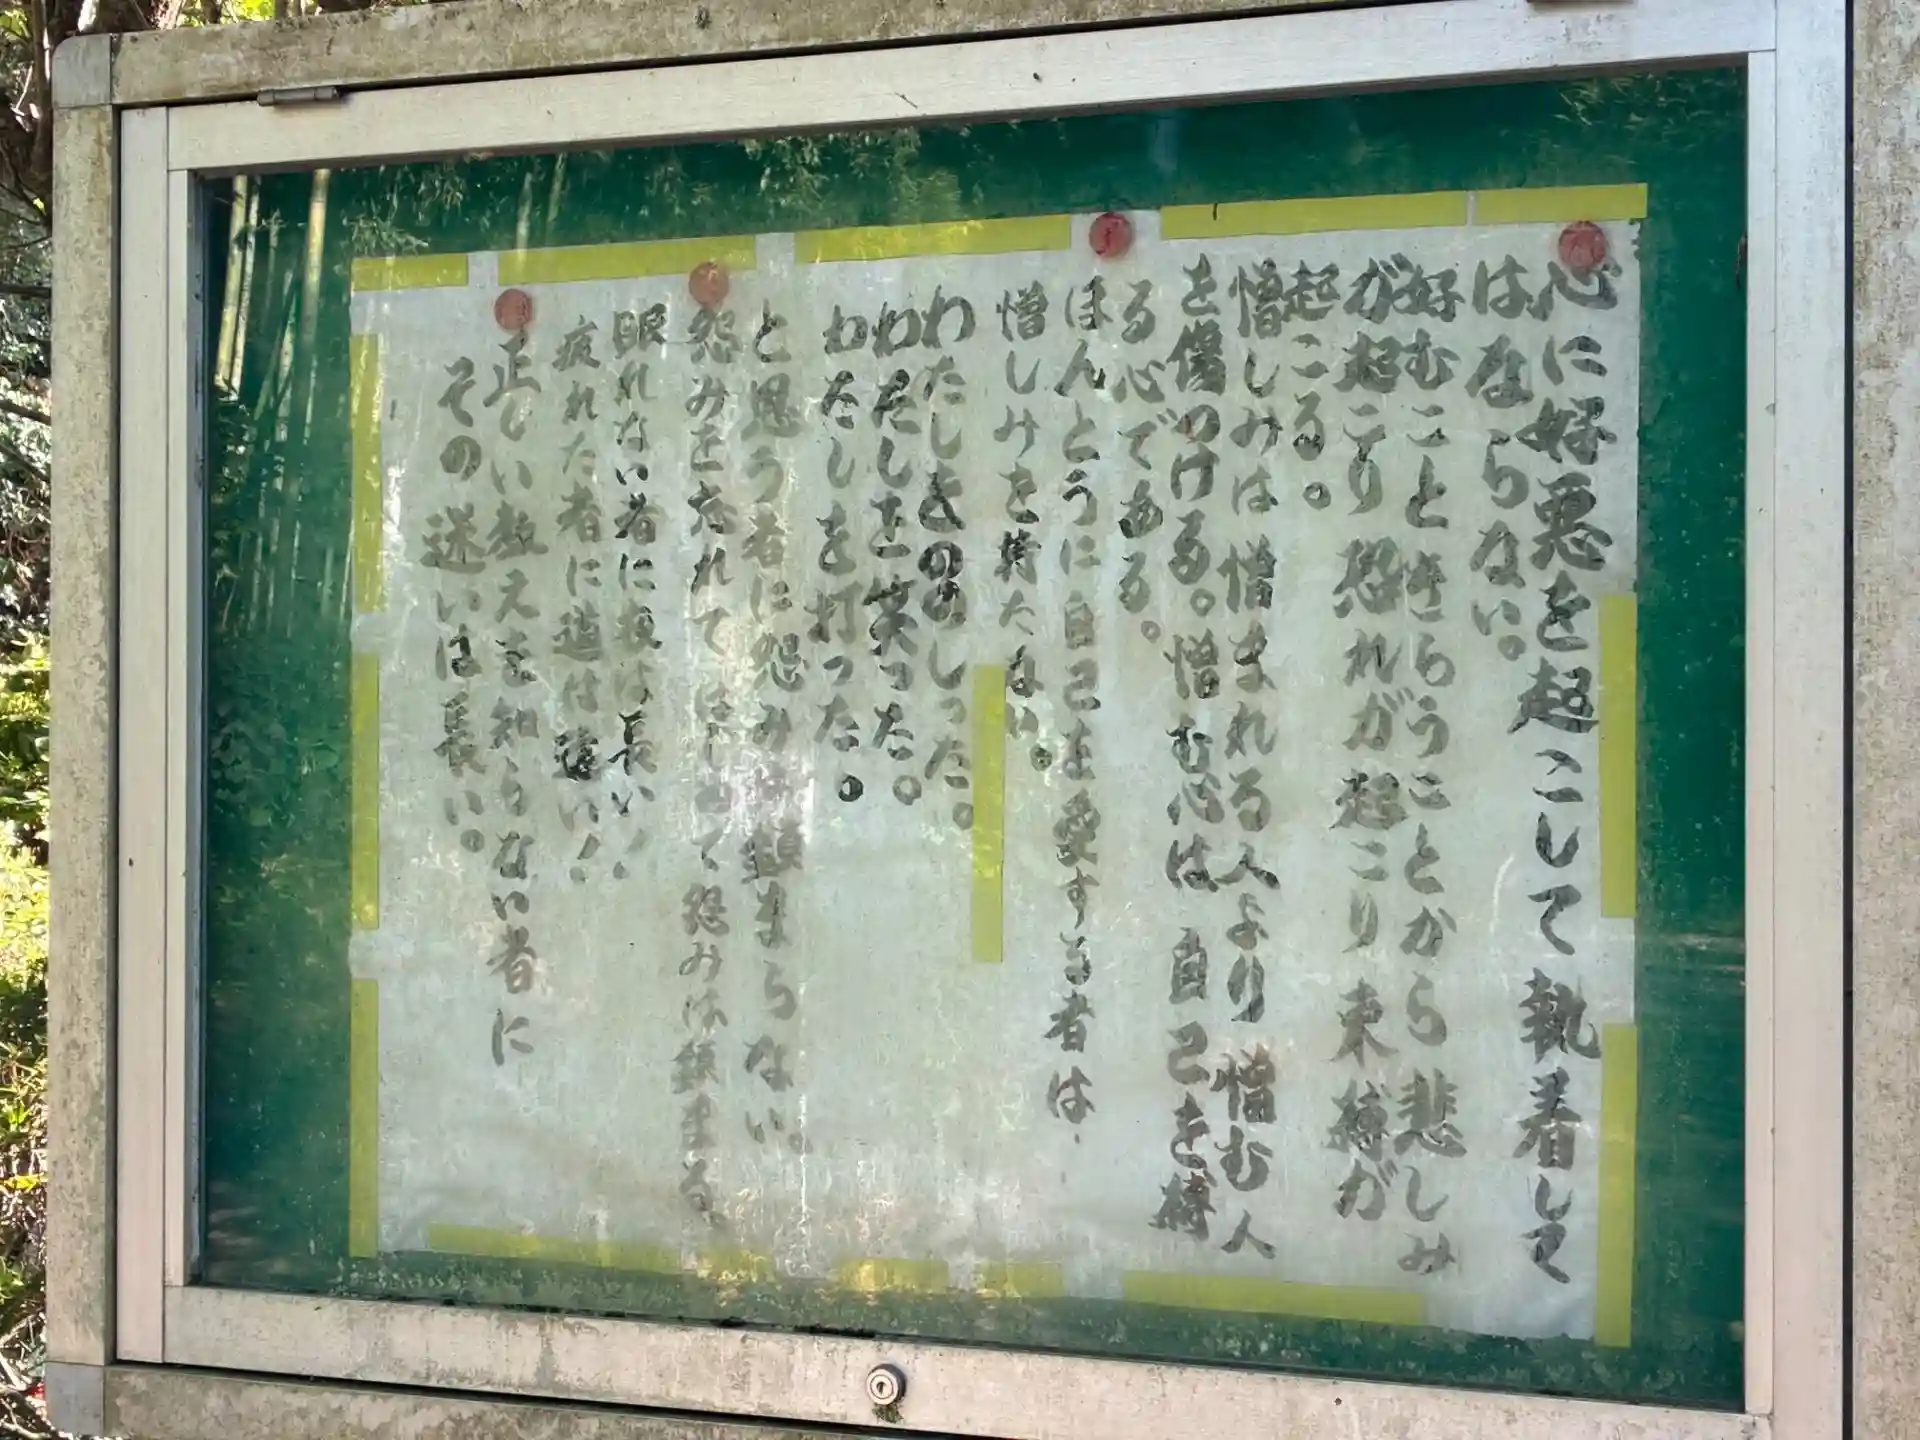 心に好悪を起こして執着して
はならない。
好むこときらうことから悲しみ
が起こり恐れが起こり束縛が
起こる。
憎しみは憎まれる人より憎む人
を傷つける。憎む心は自己を縛
る心である。
ほんとうに自己を愛する者は
憎しみを持たない。
わたしをののしった。
わたしを笑った。
わたしを打った。
と思う者に怨みは鎮まらない。
怨みを忘れてはじめて怨みは鎮まる。
眠れない者に夜は長い！
疲れた者に道は遠い！
正しい教えを知らない者に
その迷いは長い。